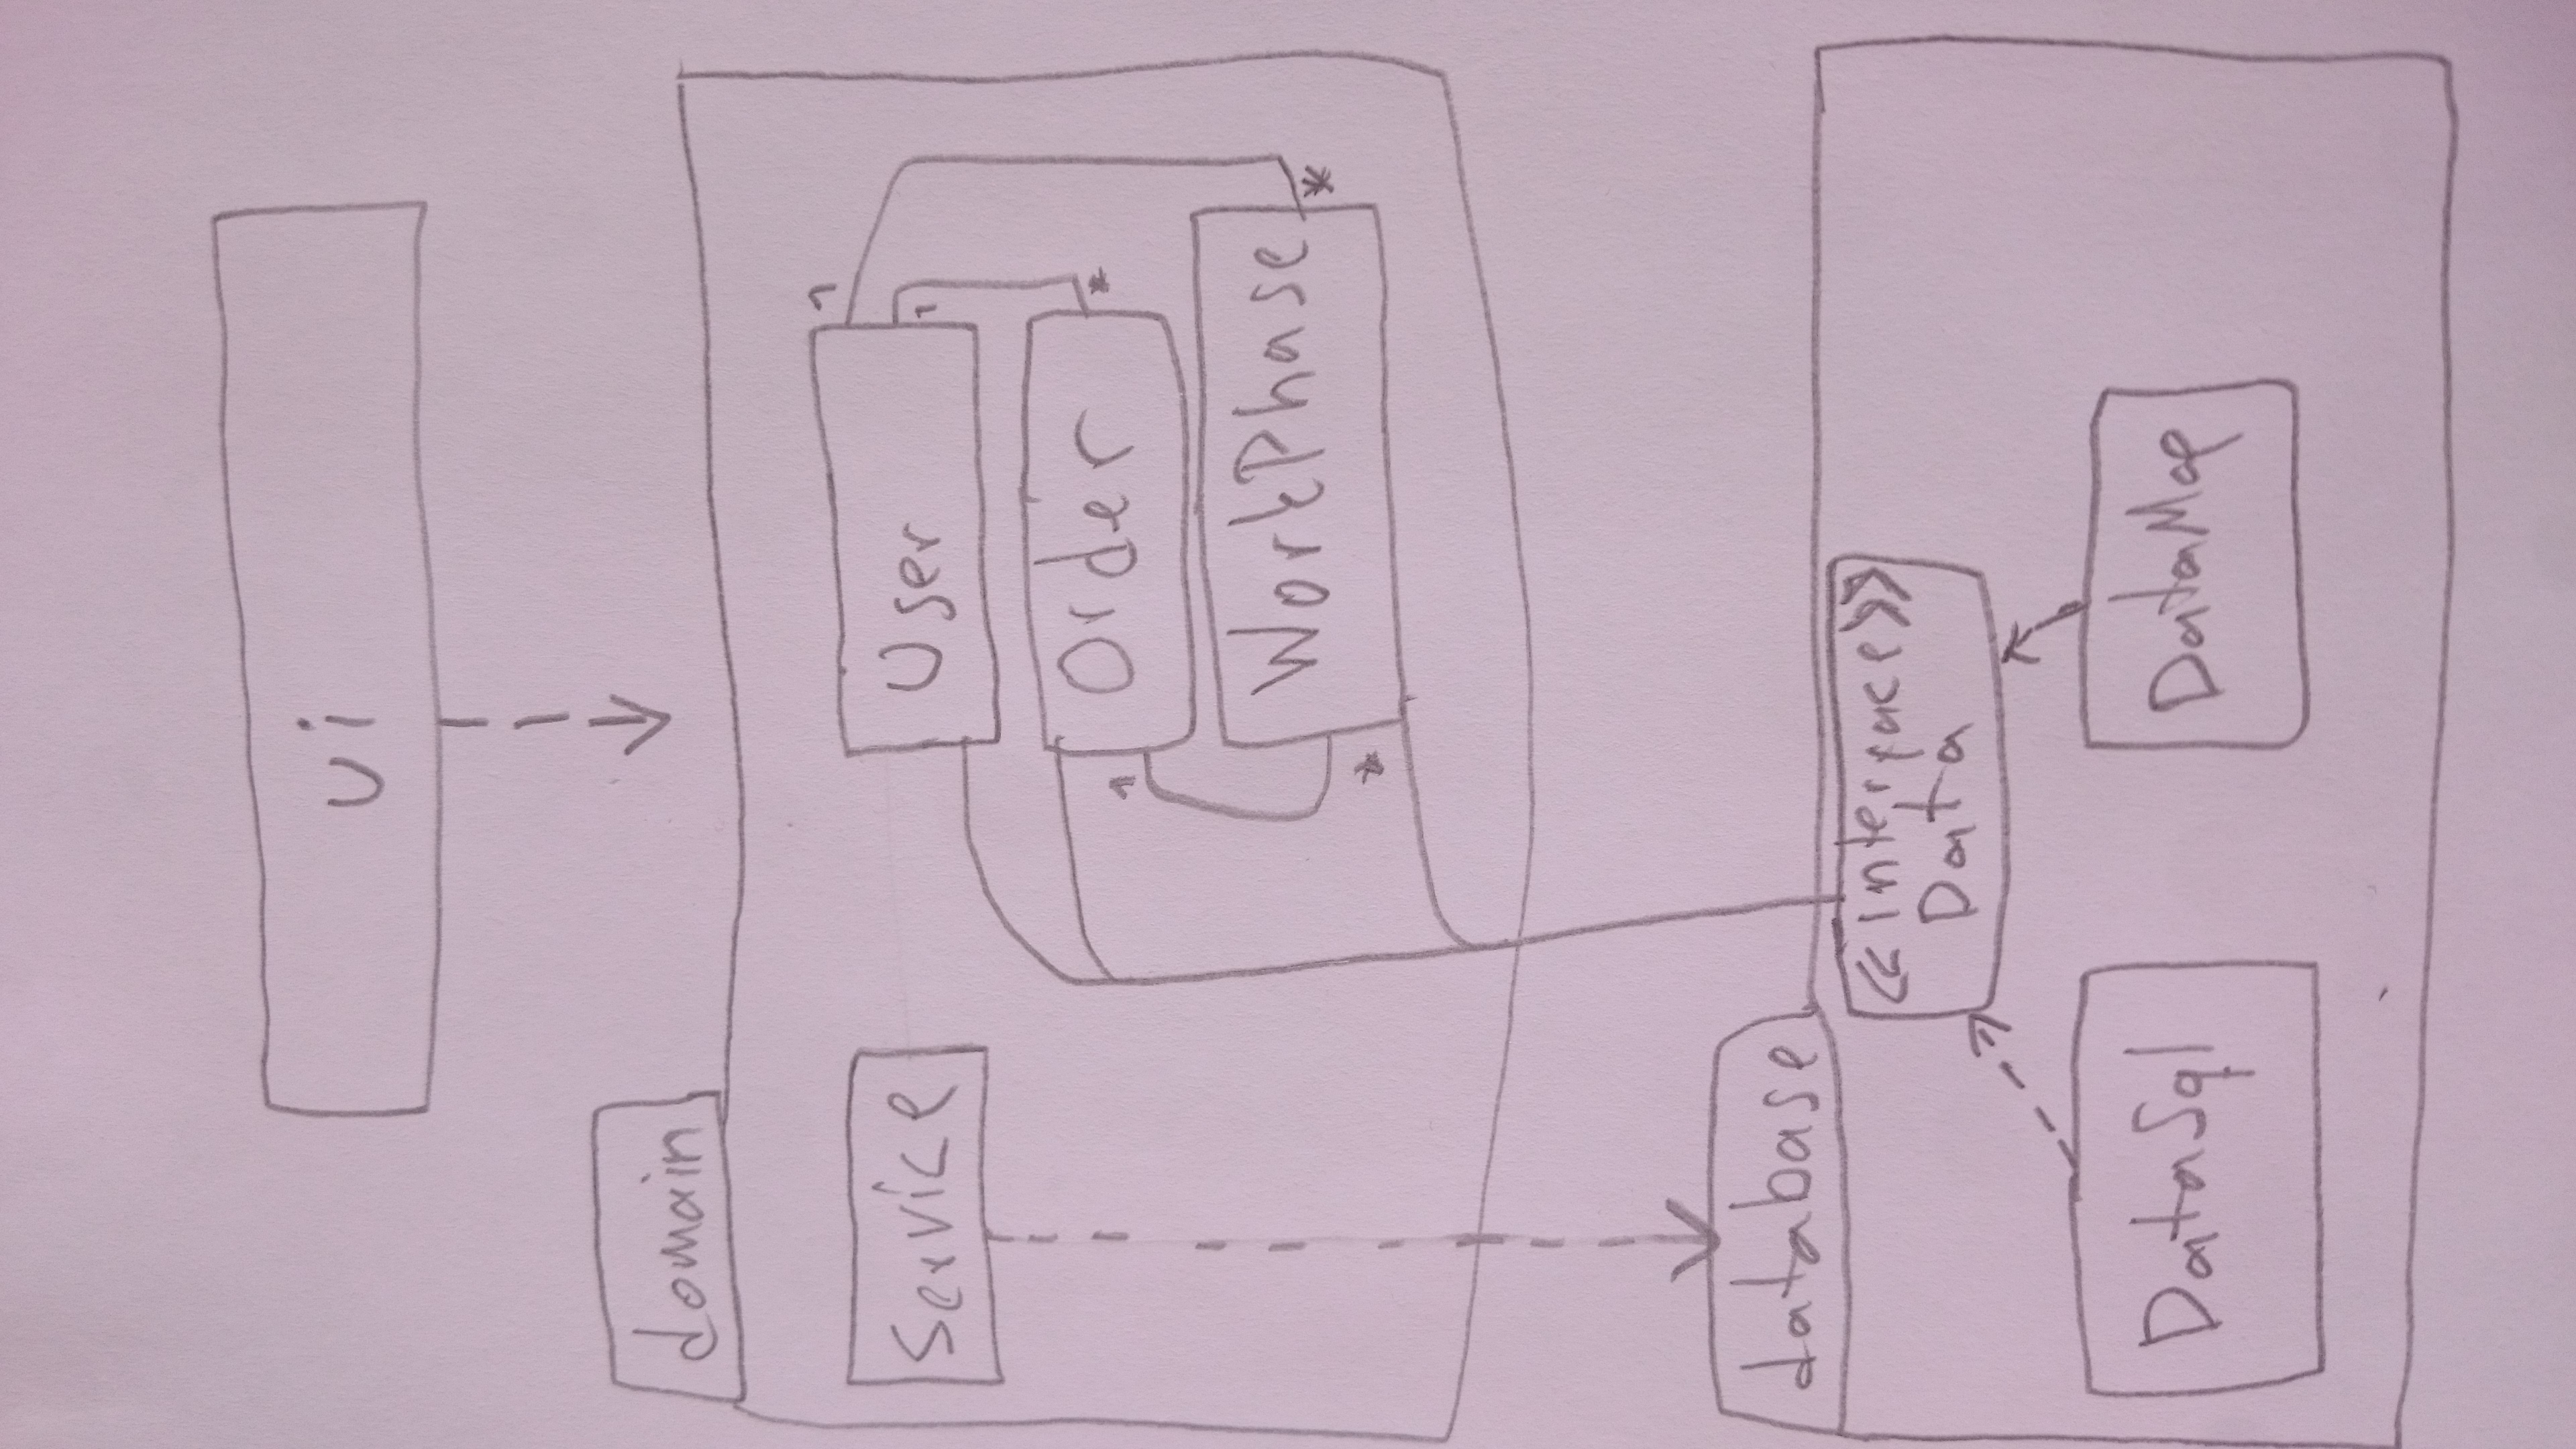 ui
domain
Service
User
1
1
Order
*
1
WorkPhase
*
*
database
<<interface>>
Data
DataSql
DataMap